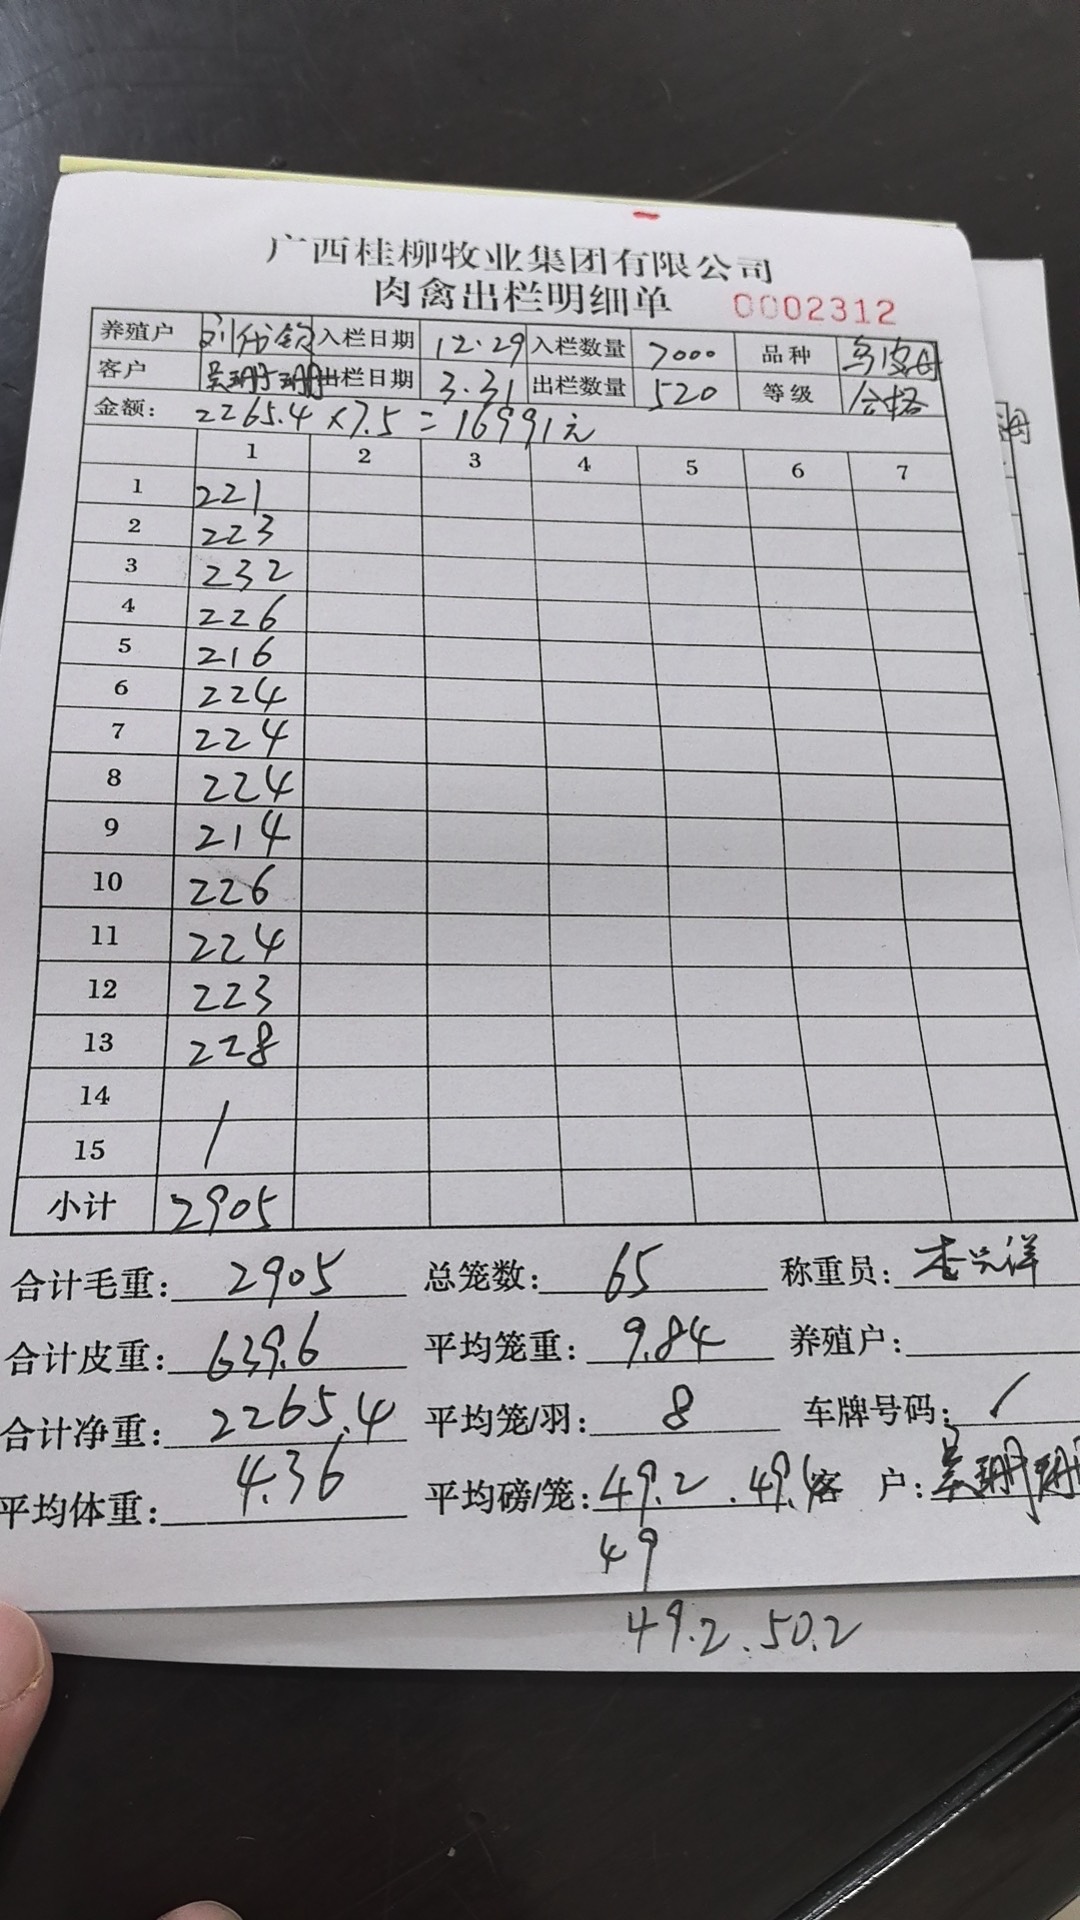 广西桂柳牧业集团有限公司
肉禽出栏明细单 0002312
养殖户 刘代钦 入栏日期 12.29 入栏数量 7000 品种 乌皮母
客户 吴珊珊 出栏日期 3.31 出栏数量 520 等级 合格
金额: 2265.4×7.5=16991元
1 2 3 4 5 6 7
1 221
2 223
3 232
4 226
5 216
6 224
7 224
8 224
9 214
10 226
11 224
12 223
13 228
14
15 /
小计 2905
合计毛重: 2905 总笼数: 65 称重员: 李兴祥
合计皮重: 639.6 平均笼重: 9.84 养殖户:
合计净重: 2265.4 平均笼/羽: 8 车牌号码: /
平均体重: 4.36 平均磅/笼: 49.2 . 49.4 客户: 吴珊珊
49
49.2 . 50.2
母